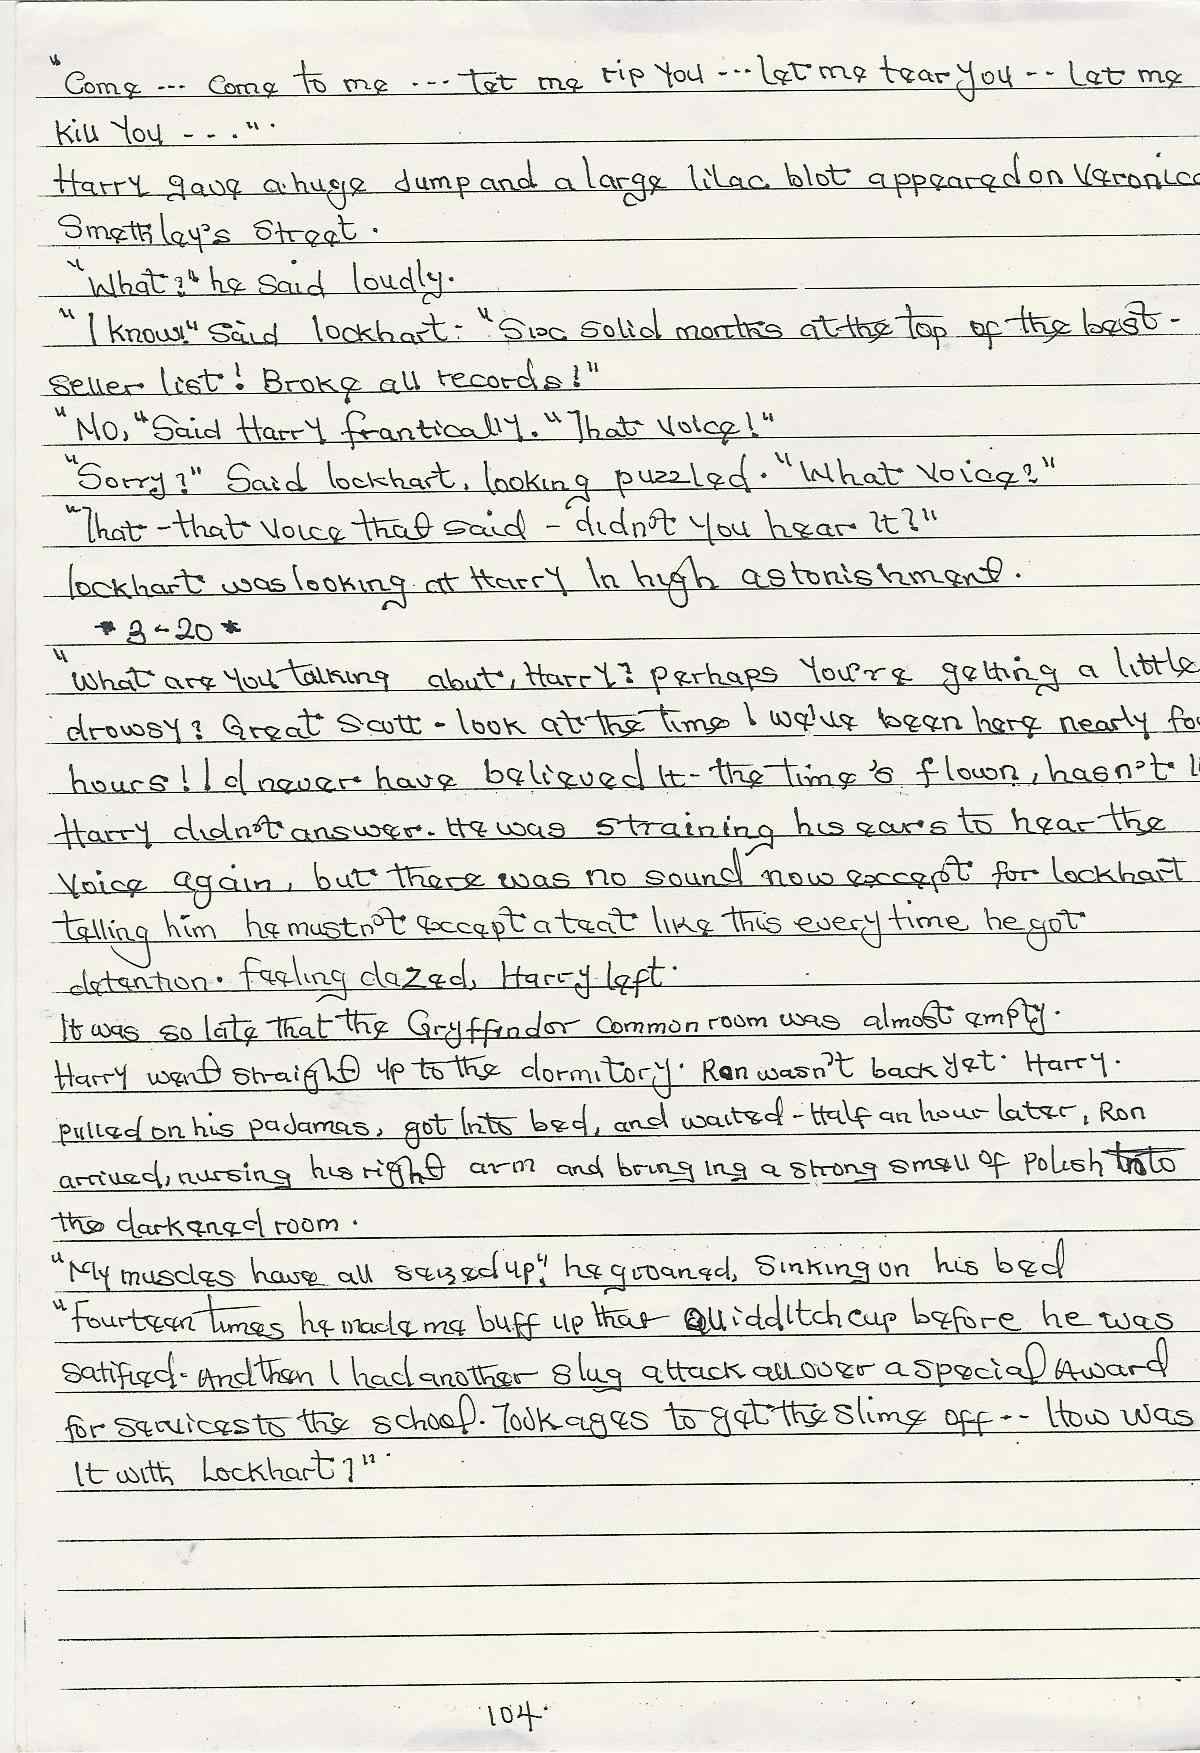 "Come --- Come to me --- tet me rip you --- let me tear you -- Let me
kill You - - -.".
Harry gave a huge dump and a large lilac blot appeared on Veronica
Smethley's Street.
"What?" he said loudly.
"I know!" Said lockhart- "Six solid months at the top of the best-
seller list! Broke all records!"
"No," Said Harry frantically. "That voice!"
"Sorry?" Said lockhart, looking puzzled. "What voice?"
"That - that voice that said - didn't you hear It?"
lockhart was looking at Harry In high astonishment.
*3-20*
"What are you talking abut, Harry? perhaps You're getting a little
drowsy? Great Scott - look at the time! we've been here nearly fo
hours! I d never have believed It - the time's flown, hasn't i
Harry didn't answer. He was straining his ears to hear the
Voice again, but there was no sound now except for lockhart
telling him he mustn't except a teat like this every time he got
detention. feeling dazed, Harry left.
It was so late that the Gryffindor Common room was almost empty.
Harry went straight up to the dormitory. Ron wasn't back yet. Harry.
pulled on his padamas, got Into bed, and waited - Half an hour later, Ron
arrived, nursing his right arm and bringing a strong smell of Polish Into
the darkened room.
"My muscles have all seized up," he grooaned, Sinking on his bed
"fourteen times he made me buff up that Quidditch cup before he was
satified- And then I had another slug attack all over a special Award
for services to the school. Took ages to get the slime off -- How was
It with Lockhart?".
104.